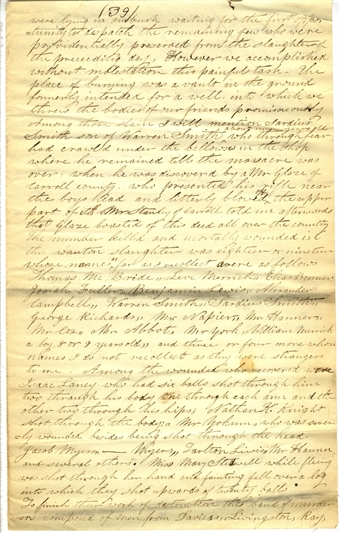 (39)
were lying in ambush waiting for the first oppor
tunity to despatch the remaining few who were
providentially preserved from the slaughter of
the preceeding day, However we accomplished
without molestation this painful task. The
place of burying was a vault in the ground
formerly intended for a well into which we
threw the bodies of our friends promiscuously
Among those slain I will mention Sardius
Smith son of Warren Smith about nine years old who through fear
had crawled under the bellows in the shop
where he remained till the massacre was
over when he was discovered by a Mr Glaze of
carroll county who presented his rifle near
the boys head and litterly blowed the upper
part of Mr Standley of carroll told me afterwards
that Glaze boasted of this deed all over the country
The number killed and mortally wounded in
this wanton slaughter was eighter or nineteen
whose names as far as I recolect were as follows
Thomas Mc Bride Levi Merrick
Josiah Fuller Benjamin Lewis Alexander
Campbell Warren Smith Sardius Smith
George Richards Mr Napier Mr Harmer
Mr Cox Mr Abbott Mr York William Merrick
a boy 8 or 9 years old and three or four more whose
names I do not recollect as they were strangers
to me Among the wounded who recovered were
Isaac Laney who had six balls shot through him
two through his body one through each arm and the
other two through his hips Nathan K Knight
shot through the body Mr Yokum who was severe
ly wounded besides being shot through the head
Jacob Myers Myers Tarlton Lewis Mr Haun
and several others Miss Mary Stedwell while fleeing
was shot through her hand and fainting fell over a log
into which they shot upwards of twenty balls
To finish their work of destruction this band of murder
ers composed of men from Davies Livingston, Ray,